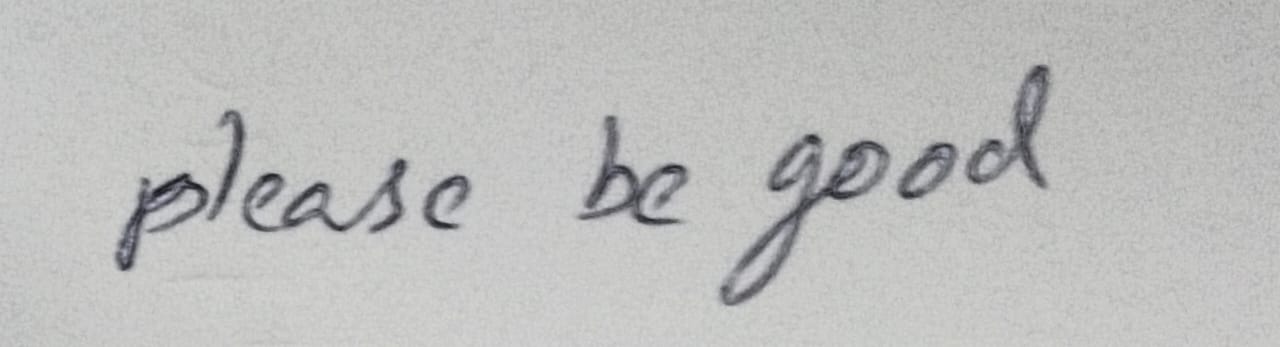 please be good